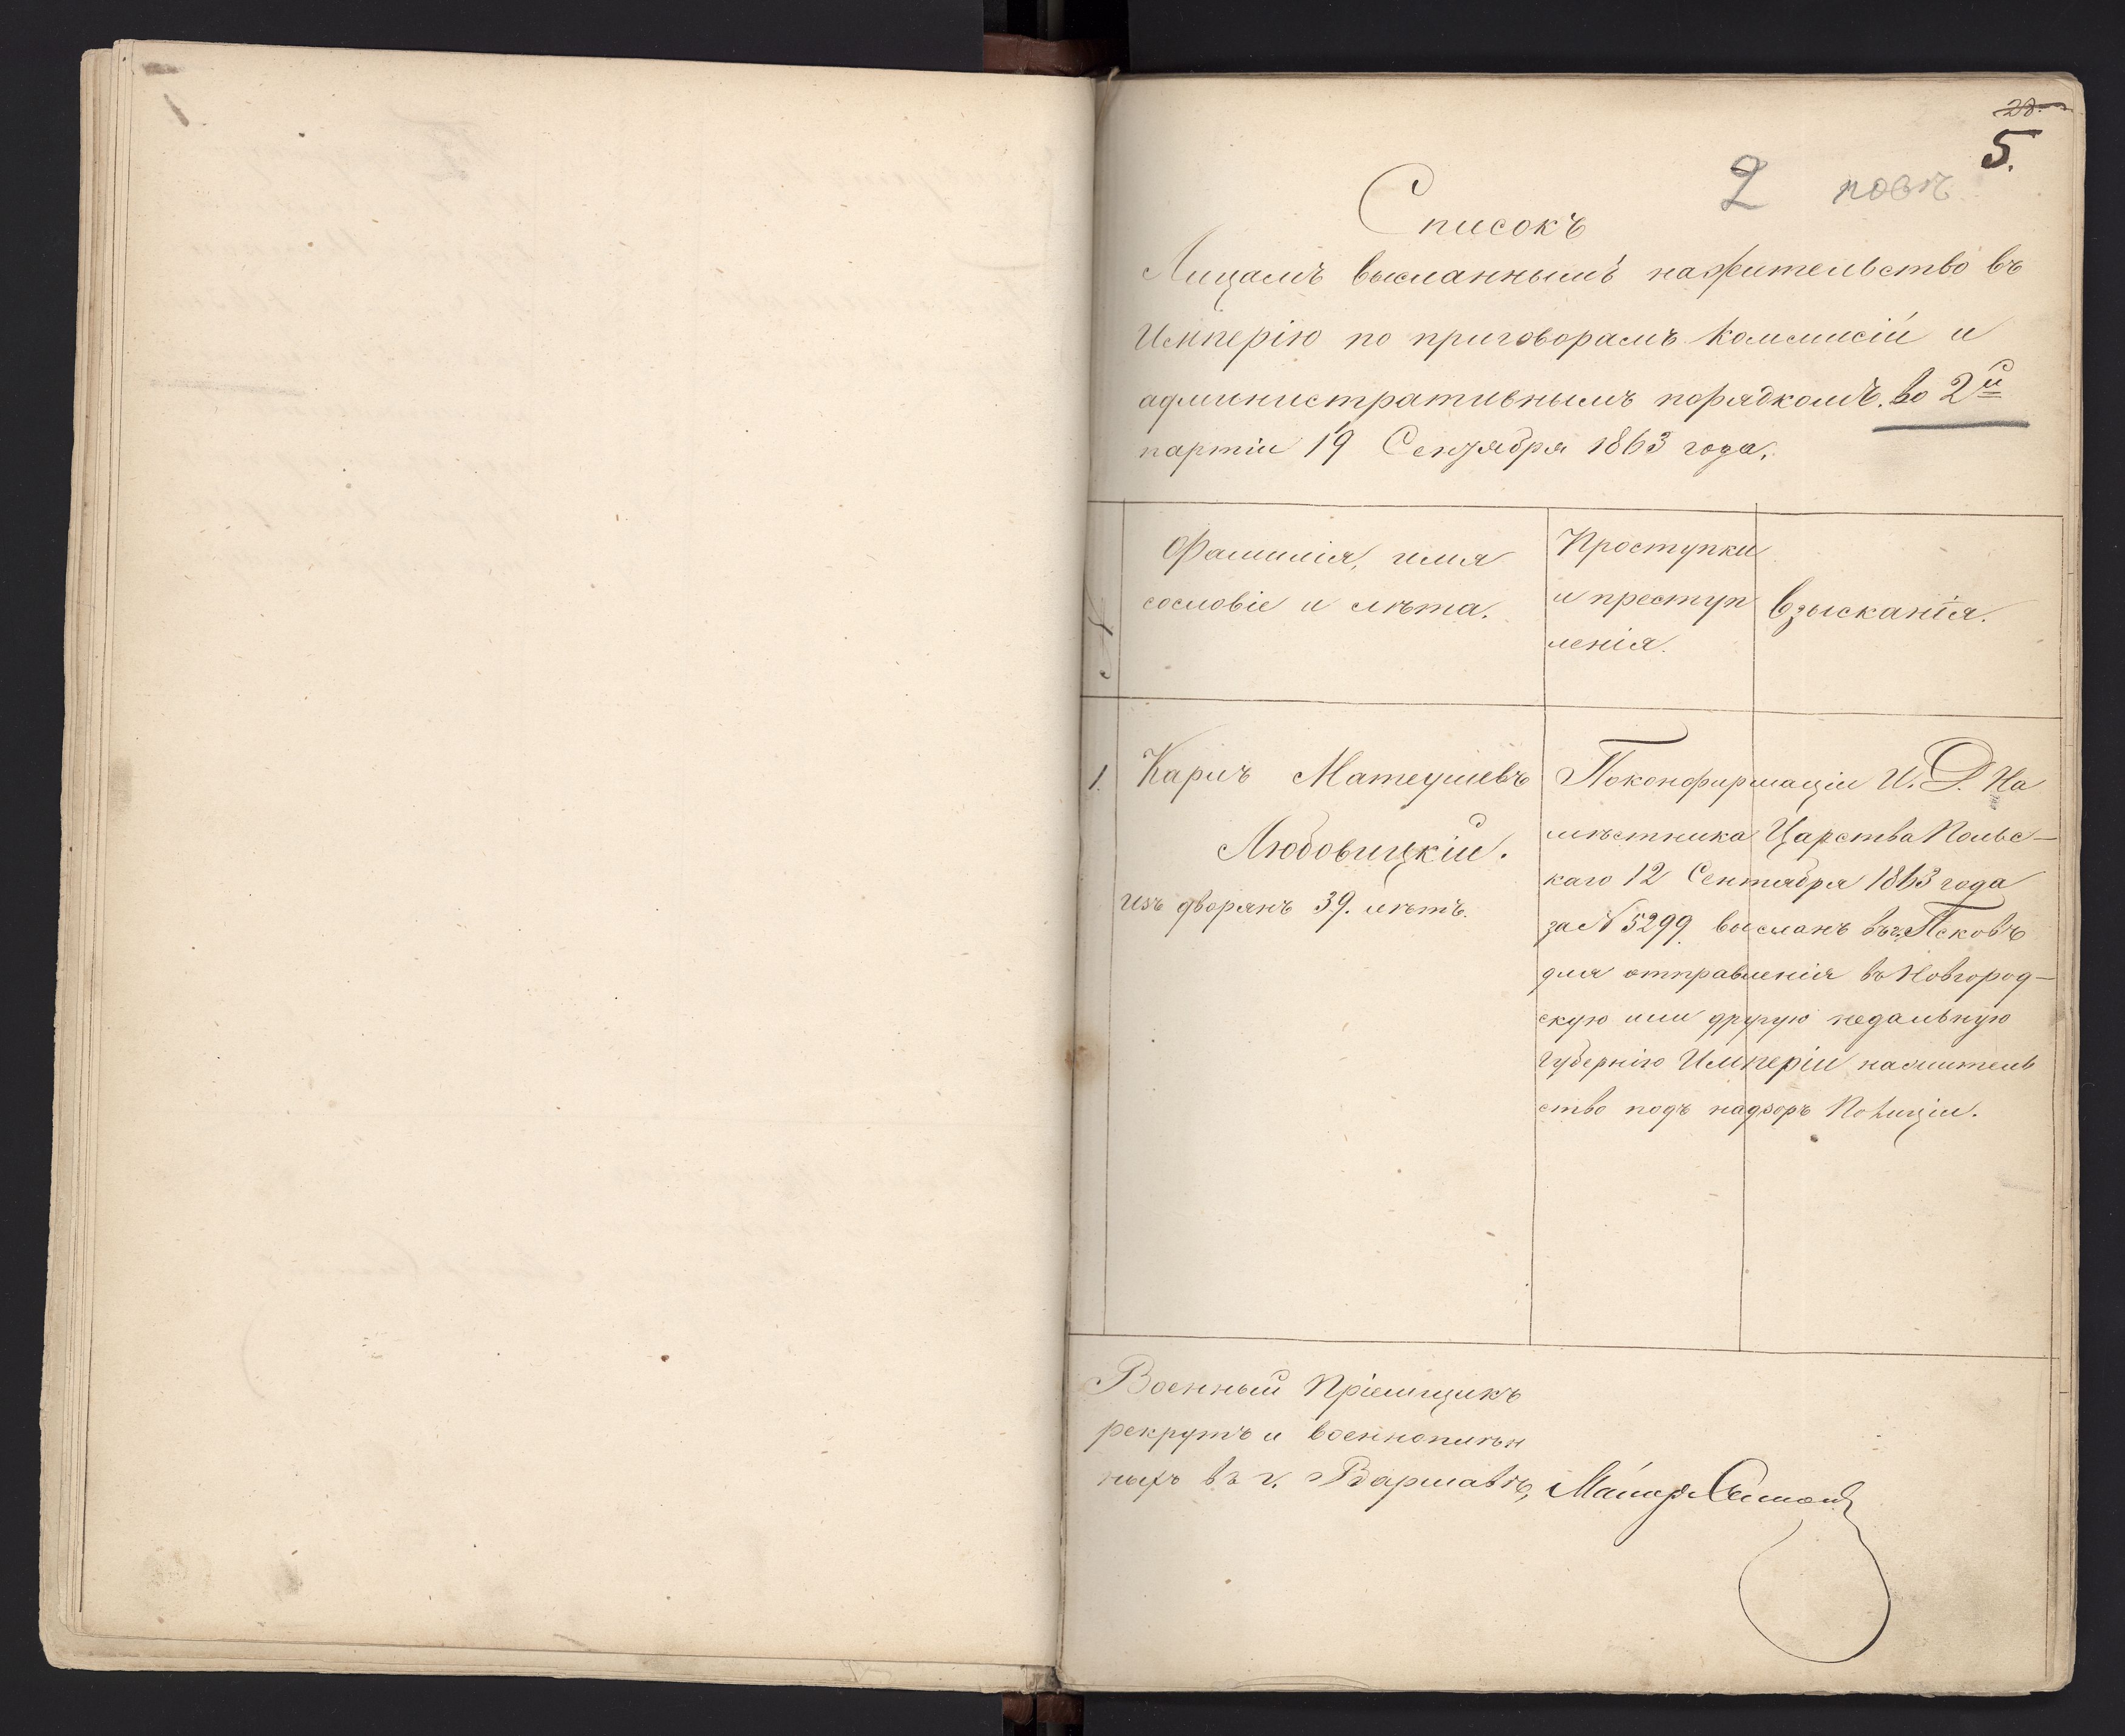 5.
2
Списокъ
Лицамъ высланнымъ на жительство въ
Имперію по приговорамъ Коммисій и
административнымъ порядкомъ. во 2й
партіи 19 Сентября 1863 года.
№
Фамилія, имя
сословіе и лѣта.
Проступки
и преступ
ленія.
Взысканія.
1.
Карлъ Матеушевъ
Любовицкій.
изъ дворянъ 39. лѣтъ.
По конфирмаціи И. Д. На
мѣстника Царства Польс-
каго 12 Сентября 1863 года
за № 5299 высланъ въ г. Псковъ
для отправленія въ Новгород-
скую или другую недальную
Губернію Имперіи на житель
ство подъ надзоръ Полиціи.
Военный Пріемщикъ
рекрутъ и военноплѣн
ныхъ въ г. Варшавѣ, Маіоръ